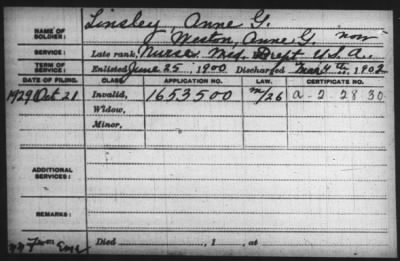 NAME OF SOLDIER: Linsley, Anne G.
Weston, Anne G. now
SERVICE: Late rank, Nurse Med Dept U.S.A.
TERM OF SERVICE: Enlisted June 25, 1900 Discharged Mar 4th, 1902
DATE OF FILING. CLASS. APPLICATION NO. LAW. CERTIFICATE NO.
1929 Oct 21 Invalid, 1653500 a-2-28-30
Widow,
Minor,
ADDITIONAL SERVICES:
REMARKS:
Died , 1 , at